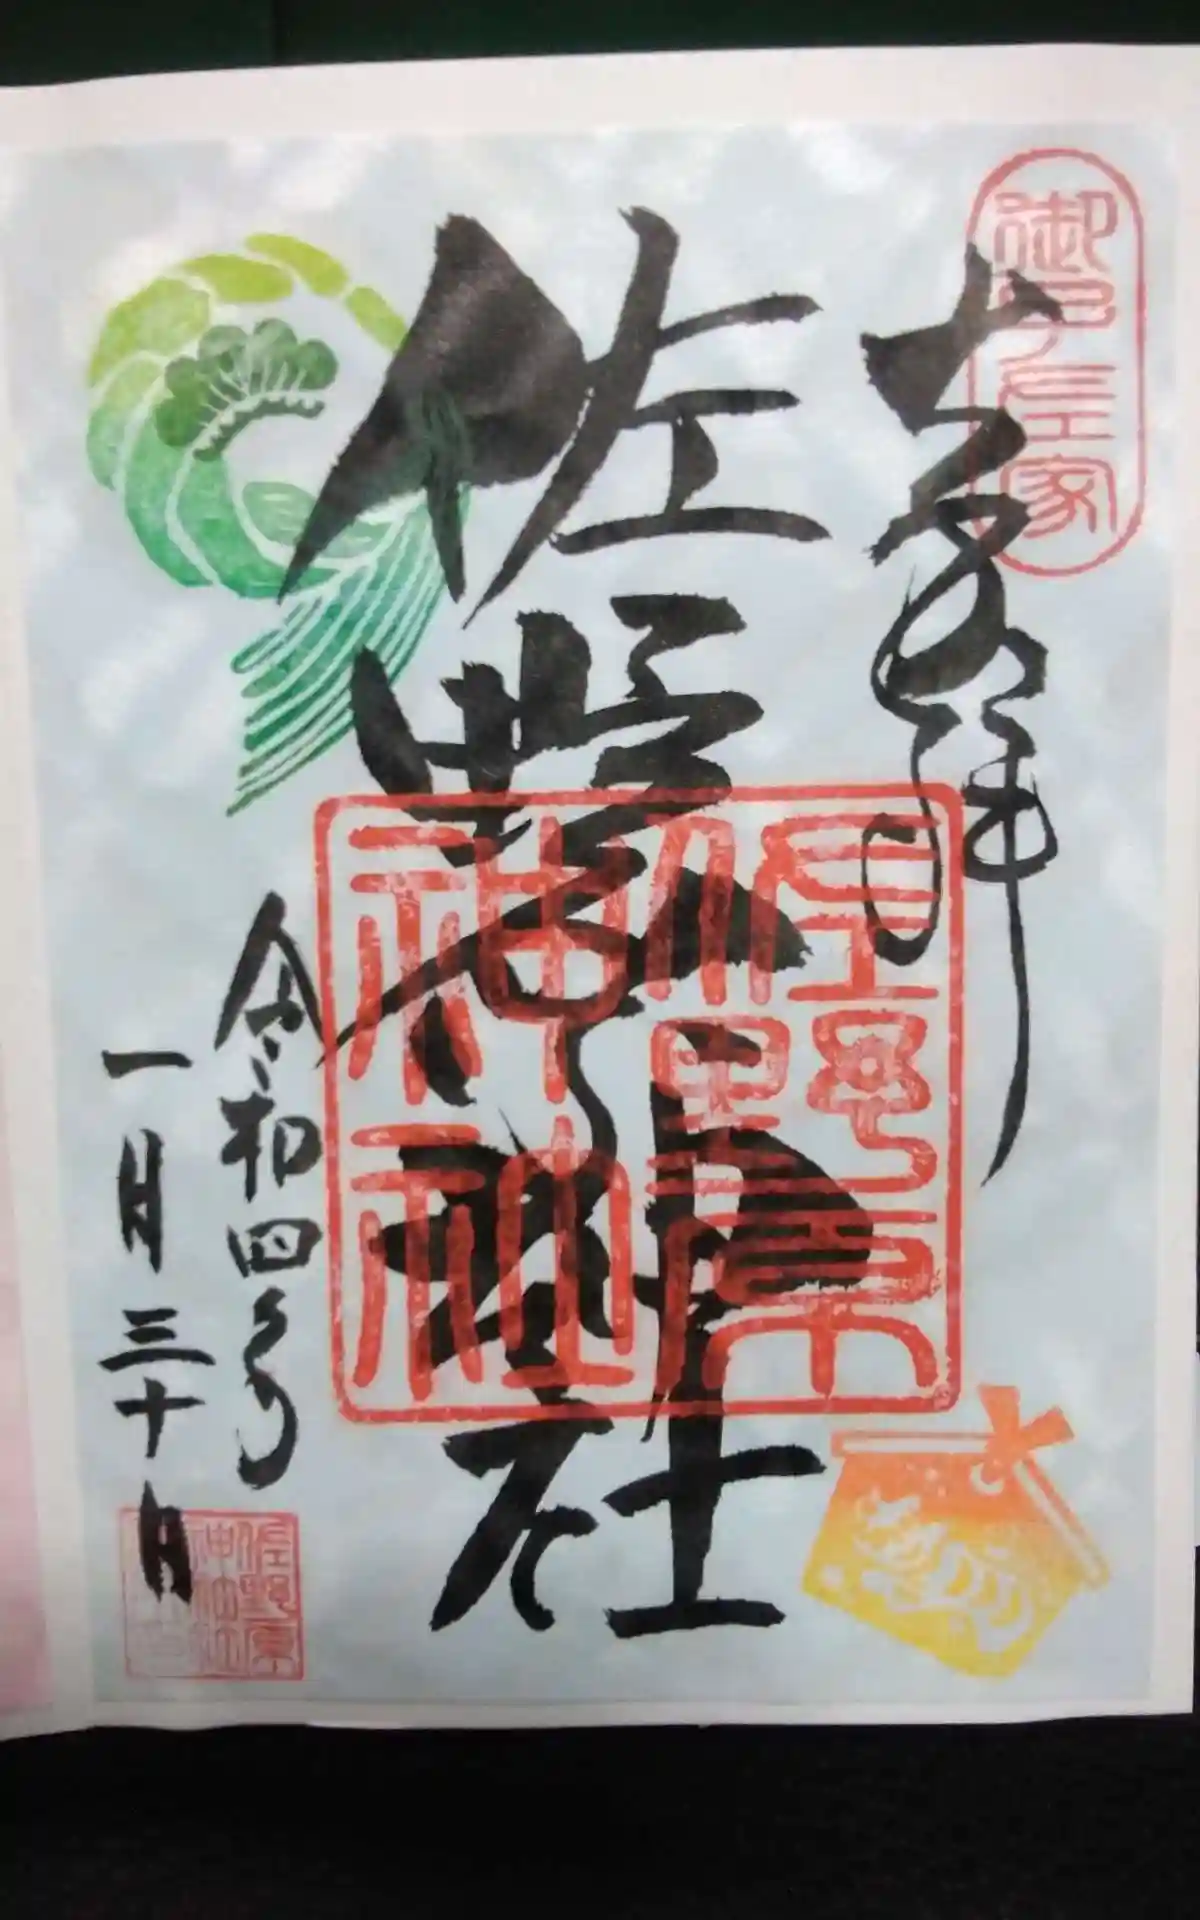 御子左家
奉拝
佐野原神社
佐野原
神社
令和四年
一月三十日
佐野原
神社